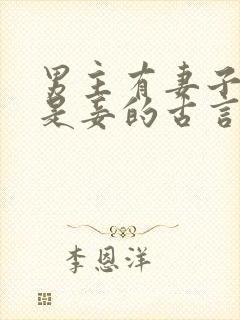 男主有妻子
是妾的古言
李恩洋